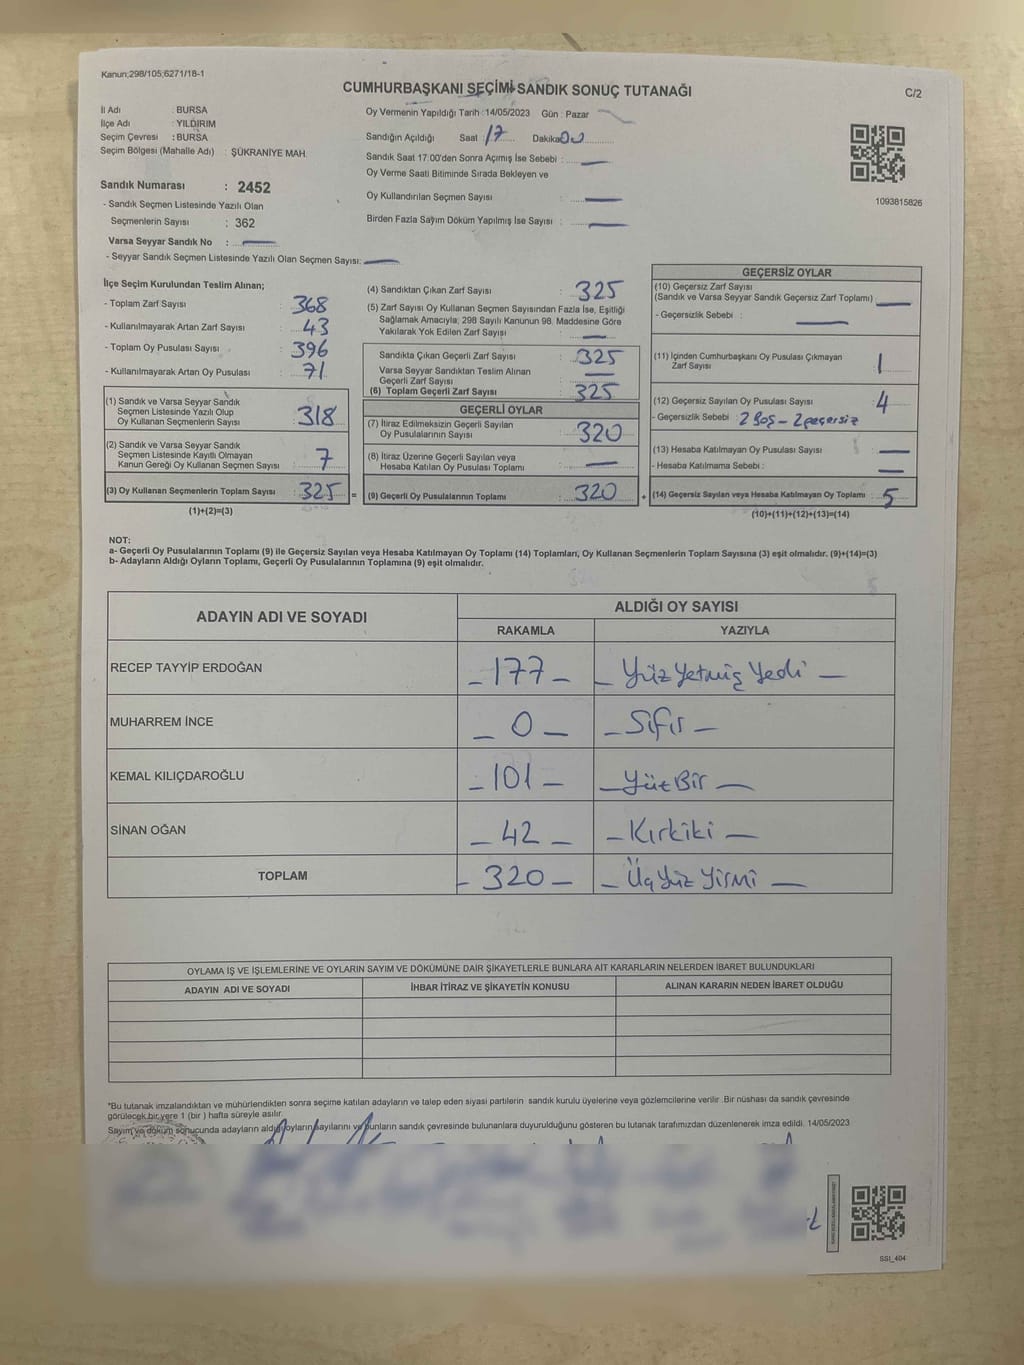 Kanun;298/105;6271/18-1
CUMHURBAŞKANI SEÇİMİ SANDIK SONUÇ TUTANAĞI
C/2
İl Adı : BURSA
İlçe Adı : YILDIRIM
Seçim Çevresi : BURSA
Seçim Bölgesi (Mahalle Adı) : ŞÜKRANİYE MAH.
Sandık Numarası : 2452
- Sandık Seçmen Listesinde Yazılı Olan
Seçmenlerin Sayısı : 362
Varsa Seyyar Sandık No :
- Seyyar Sandık Seçmen Listesinde Yazılı Olan Seçmen Sayısı:
Oy Vermenin Yapıldığı Tarih :14/05/2023 Gün : Pazar
Sandığın Açıldığı Saat : 17 Dakika 00
Sandık Saat 17:00'den Sonra Açımış İse Sebebi :
Oy Verme Saati Bitiminde Sırada Bekleyen ve
Oy Kullandırılan Seçmen Sayısı :
Birden Fazla Sayım Döküm Yapılmış İse Sayısı :
1093815826
İlçe Seçim Kurulundan Teslim Alınan;
- Toplam Zarf Sayısı : 368
- Kullanılmayarak Artan Zarf Sayısı : 43
- Toplam Oy Pusulası Sayısı : 396
- Kullanılmayarak Artan Oy Pusulası : 71
(1) Sandık ve Varsa Seyyar Sandık
Seçmen Listesinde Yazılı Olup
Oy Kullanan Seçmenlerin Sayısı : 318
(2) Sandık ve Varsa Seyyar Sandık
Seçmen Listesinde Kayıtlı Olmayan
Kanun Gereği Oy Kullanan Seçmen Sayısı : 7
(3) Oy Kullanan Seçmenlerin Toplam Sayısı : 325 =
(1)+(2)=(3)
(4) Sandıktan Çıkan Zarf Sayısı : 325
(5) Zarf Sayısı Oy Kullanan Seçmen Sayısından Fazla İse, Eşitliği
Sağlamak Amacıyla; 298 Sayılı Kanunun 98. Maddesine Göre
Yakılarak Yok Edilen Zarf Sayısı :
Sandıkta Çıkan Geçerli Zarf Sayısı : 325
Varsa Seyyar Sandıktan Teslim Alınan
Geçerli Zarf Sayısı :
(6) Toplam Geçerli Zarf Sayısı : 325
GEÇERLİ OYLAR
(7) İtiraz Edilmeksizin Geçerli Sayılan
Oy Pusulalarının Sayısı : 320
(8) İtiraz Üzerine Geçerli Sayılan veya
Hesaba Katılan Oy Pusulası Toplamı :
(9) Geçerli Oy Pusulalarının Toplamı : 320 +
GEÇERSİZ OYLAR
(10) Geçersiz Zarf Sayısı
(Sandık ve Varsa Seyyar Sandık Geçersiz Zarf Toplamı)
- Geçersizlik Sebebi :
(11) İçinden Cumhurbaşkanı Oy Pusulası Çıkmayan
Zarf Sayısı : 1
(12) Geçersiz Sayılan Oy Pusulası Sayısı : 4
- Geçersizlik Sebebi : 2 Boş - 2 geçersiz
(13) Hesaba Katılmayan Oy Pusulası Sayısı :
- Hesaba Katılmama Sebebi :
(14) Geçersiz Sayılan veya Hesaba Katılmayan Oy Toplamı : 5
(10)+(11)+(12)+(13)=(14)
NOT:
a- Geçerli Oy Pusulalarının Toplamı (9) ile Geçersiz Sayılan veya Hesaba Katılmayan Oy Toplamı (14) Toplamları, Oy Kullanan Seçmenlerin Toplam Sayısına (3) eşit olmalıdır. (9)+(14)=(3)
b- Adayların Aldığı Oyların Toplamı, Geçerli Oy Pusulalarının Toplamına (9) eşit olmalıdır.
ADAYIN ADI VE SOYADI
ALDIĞI OY SAYISI
RAKAMLA YAZIYLA
RECEP TAYYİP ERDOĞAN - 177 - - Yüz Yetmiş Yedi -
MUHARREM İNCE - 0 - - Sıfır -
KEMAL KILIÇDAROĞLU - 101 - - Yüz Bir -
SİNAN OĞAN - 42 - - Kırkiki -
TOPLAM - 320 - - Üç Yüz Yirmi -
OYLAMA İŞ VE İŞLEMLERİNE VE OYLARIN SAYIM VE DÖKÜMÜNE DAİR ŞİKAYETLERLE BUNLARA AİT KARARLARIN NELERDEN İBARET BULUNDUKLARI
ADAYIN ADI VE SOYADI İHBAR İTİRAZ VE ŞİKAYETİN KONUSU ALINAN KARARIN NEDEN İBARET OLDUĞU
*Bu tutanak imzalandıktan ve mühürlendikten sonra seçime katılan adayların ve talep eden siyasi partilerin sandık kurulu üyelerine veya gözlemcilerine verilir .Bir nüshası da sandık çevresinde
görülecek bir yere 1 (bir ) hafta süreyle asılır.
Sayım ve döküm sonucunda adayların aldığı oyların sayılarını ve bunların sandık çevresinde bulunanlara duyurulduğunu gösteren bu tutanak tarafımızdan düzenlenerek imza edildi. 14/05/2023
SSI_404